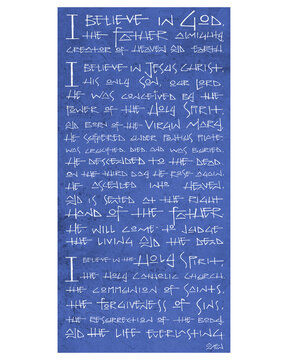 I BELIEVE IN GOD,
THE FATHER ALMIGHTY
CREATOR OF HEAVEN AND EARTH
I BELIEVE IN JESUS CHRIST,
HIS ONLY SON, OUR LORD.
HE WAS CONCEIVED BY THE
POWER OF THE HOLY SPIRIT,
AND BORN OF THE VIRGIN MARY.
HE SUFFERED UNDER PONTIUS PILATE
WAS CRUCIFIED, DIED, AND WAS BURIED.
HE DESCENDED TO THE DEAD.
ON THE THIRD DAY HE ROSE AGAIN.
HE ASCENDED INTO HEAVEN,
AND IS SEATED AT THE RIGHT
HAND OF THE FATHER
HE WILL COME TO JUDGE
THE LIVING AND THE DEAD
I BELIEVE IN THE HOLY SPIRIT,
THE HOLY CATHOLIC CHURCH,
THE COMMUNION OF SAINTS,
THE FORGIVENESS OF SINS,
THE RESURRECTION OF THE BODY,
AND THE LIFE EVERLASTING